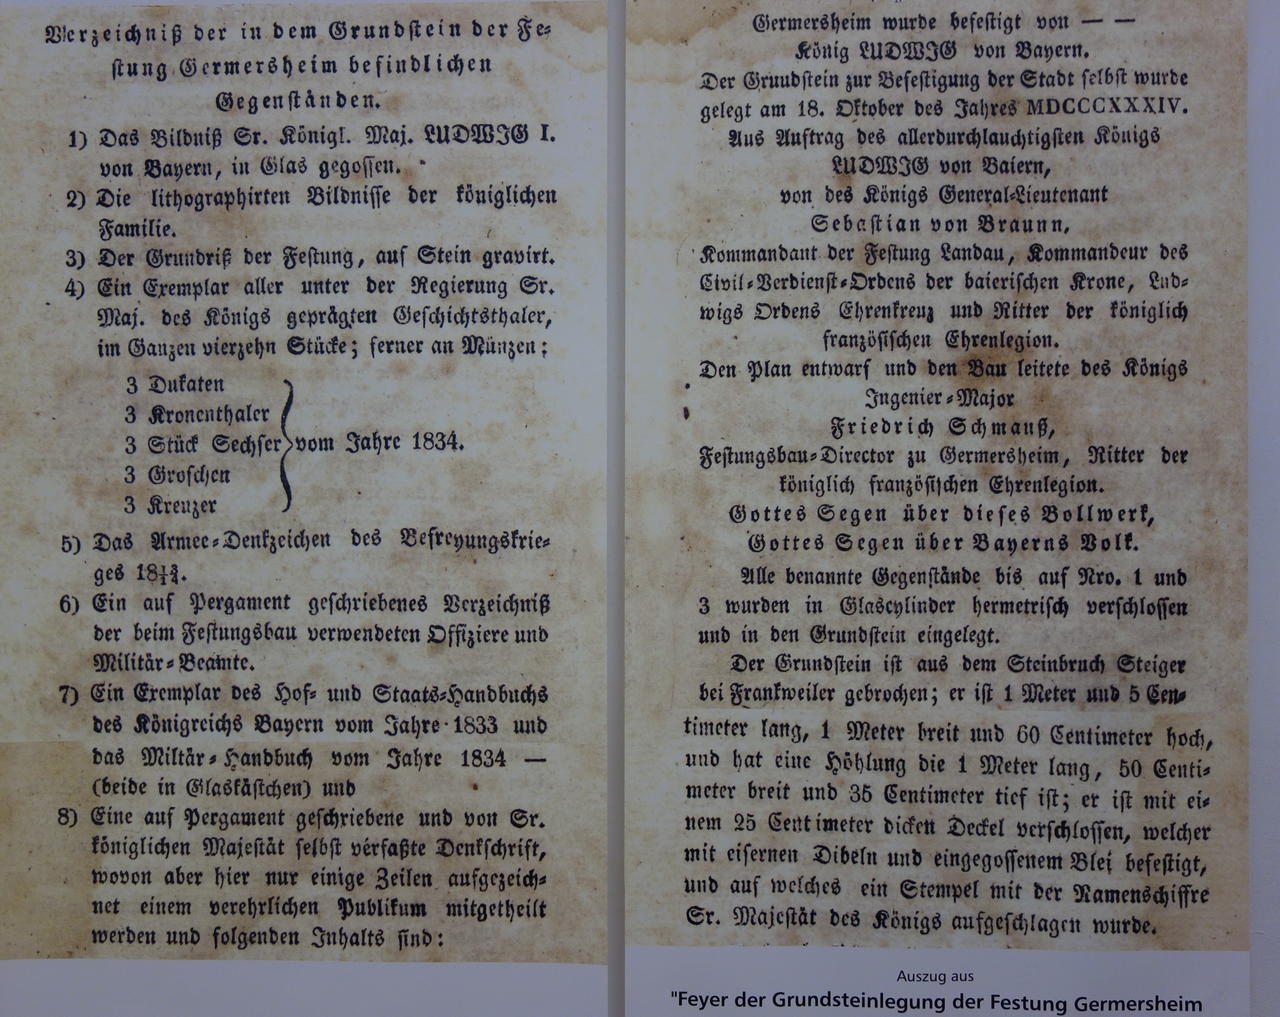 Verzeichniß der in dem Grundstein der Fe-
stung Germersheim befindlichen
Gegenständen.
1) Das Bildniß Sr. Königl. Maj. LUDWIG I.
von Bayern, in Glas gegossen.
2) Die lithographirten Bildnisse der königlichen
Familie.
3) Der Grundriß der Festung, auf Stein gravirt.
4) Ein Exemplar aller unter der Regierung Sr.
Maj. des Königs geprägten Geschichtsthaler,
im Ganzen vierzehn Stücke; ferner an Münzen:
3 Dukaten
3 Kronenthaler
3 Stück Sechser vom Jahre 1834.
3 Groschen
3 Kreuzer
5) Das Armee-Denkzeichen des Befreyungskrie-
ges 18 13/14.
6) Ein auf Pergament geschriebenes Verzeichniß
der beim Festungsbau verwendeten Offiziere und
Militär-Beamte.
7) Ein Exemplar des Hof- und Staats-Handbuchs
des Königreichs Bayern vom Jahre 1833 und
das Miltär-Handbuch vom Jahre 1834 —
(beide in Glaskästchen) und
8) Eine auf Pergament geschriebene und von Sr.
königlichen Majestät selbst verfaßte Denkschrift,
wovon aber hier nur einige Zeilen aufgezeich-
net einem verehrlichen Publikum mitgetheilt
werden und folgenden Inhalts sind:
Germersheim wurde befestigt von — —
König LUDWIG von Bayern.
Der Grundstein zur Befestigung der Stadt selbst wurde
gelegt am 18. Oktober des Jahres MDCCCXXXIV.
Aus Auftrag des allerdurchlauchtigsten Königs
LUDWIG von Baiern,
von des Königs General-Lieutenant
Sebastian von Braunn,
Kommandant der Festung Landau, Kommandeur des
Civil-Verdienst-Ordens der baierischen Krone, Lud-
wigs Ordens Ehrenkreuz und Ritter der königlich
französischen Ehrenlegion.
Den Plan entwarf und den Bau leitete des Königs
Ingenier-Major
Friedrich Schmauß,
Festungsbau-Director zu Germersheim, Ritter der
königlich französischen Ehrenlegion.
Gottes Segen über dieses Bollwerk,
Gottes Segen über Bayerns Volk.
Alle benannte Gegenstände bis auf Nro. 1 und
3 wurden in Glascylinder hermetrisch verschlossen
und in den Grundstein eingelegt.
Der Grundstein ist aus dem Steinbruch Steiger
bei Frankweiler gebrochen; er ist 1 Meter und 5 Cen-
timeter lang, 1 Meter breit und 60 Centimeter hoch,
und hat eine Höhlung die 1 Meter lang, 50 Centi-
meter breit und 35 Centimeter tief ist; er ist mit ei-
nem 25 Centimeter dicken Deckel verschlossen, welcher
mit eisernen Dibeln und eingegossenem Blei befestigt,
und auf welches ein Stempel mit der Namenschiffre
Sr. Majestät des Königs aufgeschlagen wurde.
Auszug aus
"Feyer der Grundsteinlegung der Festung Germersheim